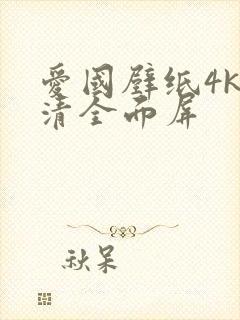 愛國壁纸4K
清全面屏
秋呆